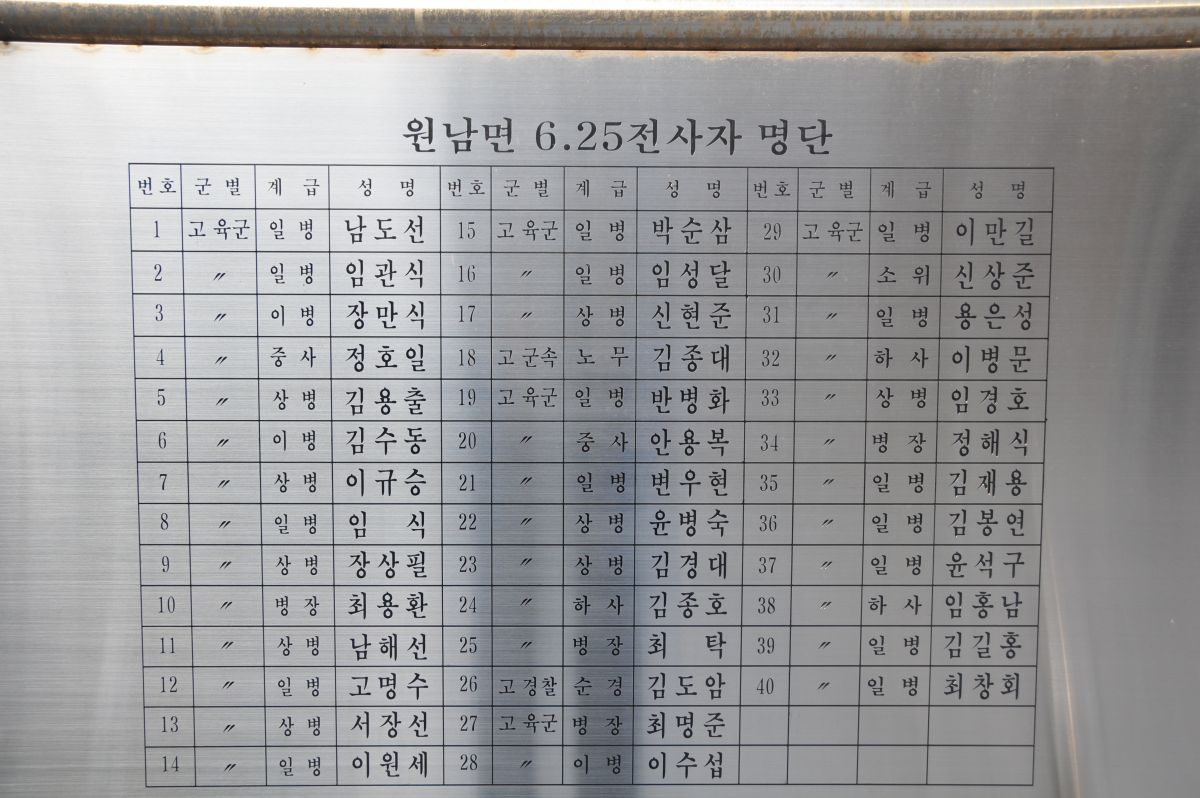 원남면 6.25전사자 명단
번호 군별 계급 성명 번호 군별 계급 성명 번호 군별 계급 성명
1 고 육군 일병 남도선 15 고 육군 일병 박순삼 29 고 육군 일병 이만길
2 〃 일병 임관식 16 〃 일병 임성달 30 〃 소위 신상준
3 〃 이병 장만식 17 〃 상병 신현준 31 〃 일병 용은성
4 〃 중사 정호일 18 고 군속 노무 김종대 32 〃 하사 이병문
5 〃 상병 김용출 19 고 육군 일병 반병화 33 〃 상병 임경호
6 〃 이병 김수동 20 〃 중사 안용복 34 〃 병장 정해식
7 〃 상병 이규승 21 〃 일병 변우현 35 〃 일병 김재용
8 〃 일병 임식 22 〃 상병 윤병숙 36 〃 일병 김봉연
9 〃 상병 장상필 23 〃 상병 김경대 37 〃 일병 윤석구
10 〃 병장 최용환 24 〃 하사 김종호 38 〃 하사 임홍남
11 〃 상병 남해선 25 〃 병장 최탁 39 〃 일병 김길홍
12 〃 일병 고명수 26 고 경찰 순경 김도암 40 〃 일병 최창회
13 〃 상병 서장선 27 고 육군 병장 최명준
14 〃 일병 이원세 28 〃 이병 이수섭